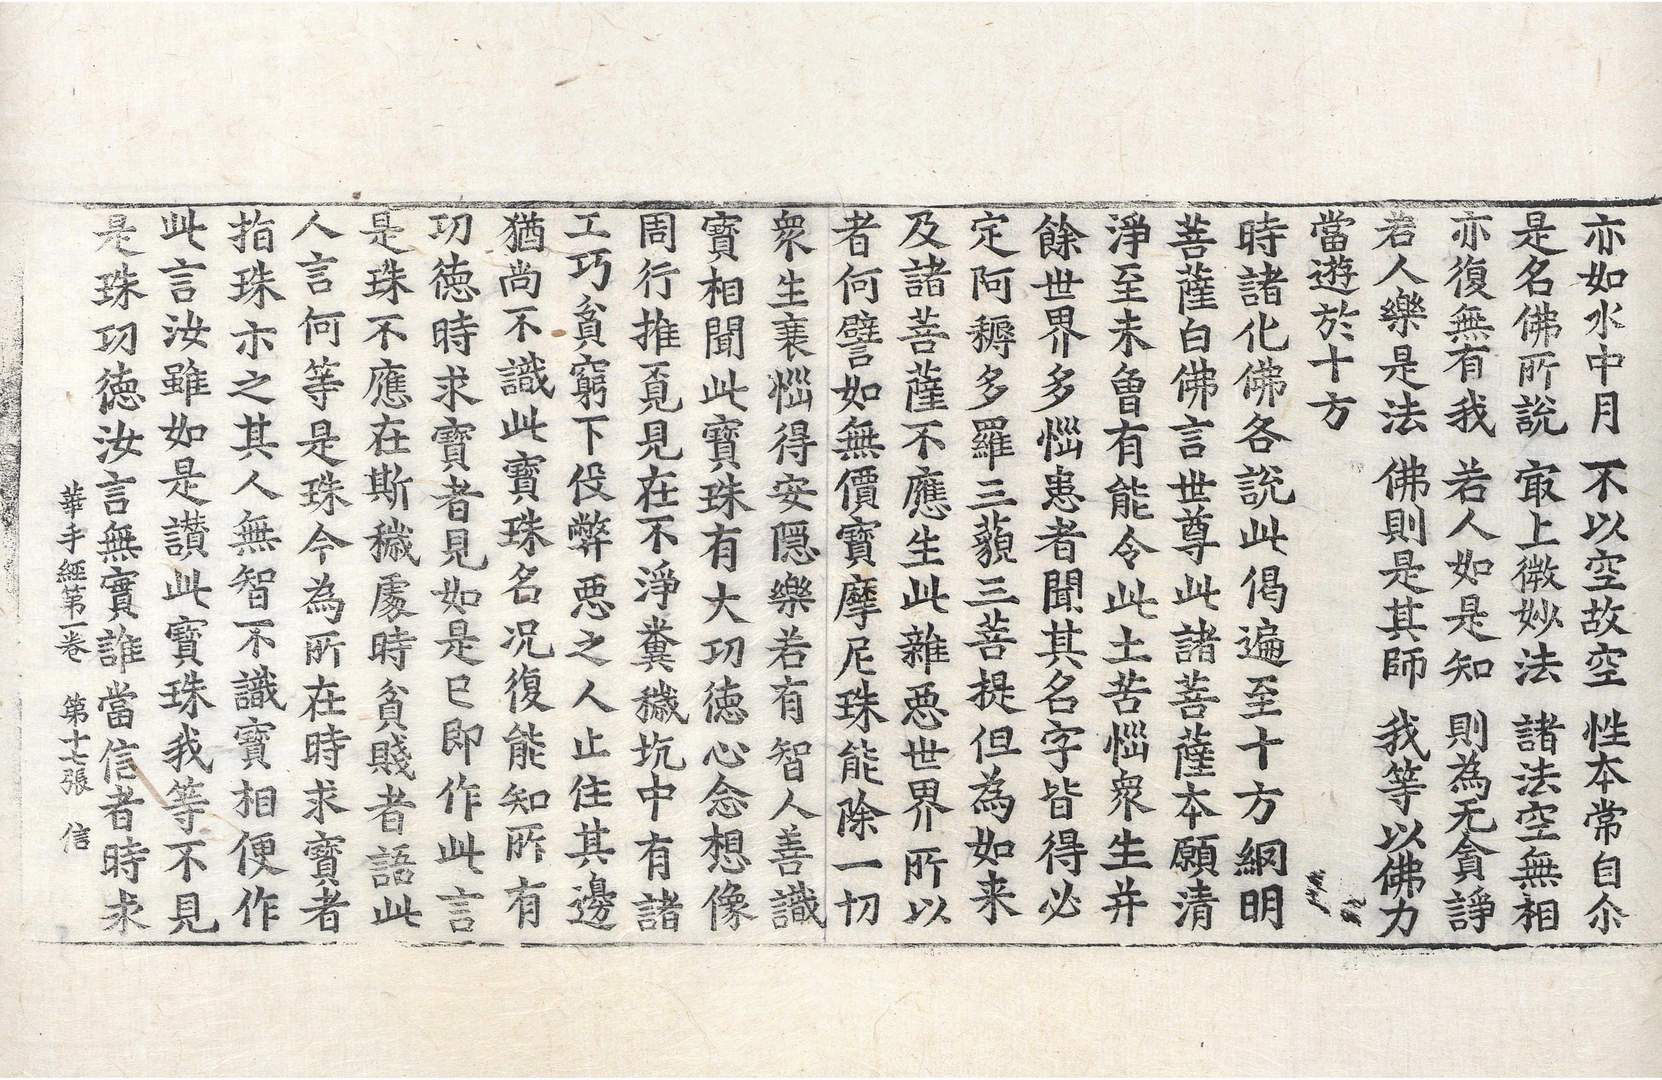 亦如水中月　不以空故空　性本常自尒
是名佛所說　㝡上微妙法　諸法空無相
亦復無有我　若人如是知　則為无貪諍
若人樂是法　佛則是其師　我等以佛力
當遊於十方
時諸化佛各說此偈遍至十方網明
菩薩白佛言世尊此諸菩薩本願清
淨至未曾有能令此土苦惱衆生并
餘世界多惱患者聞其名字皆得必
定阿耨多羅三藐三菩提但為如来
及諸菩薩不應生此雜惡世界所以
者何譬如無價寶摩尼珠能除一切
衆生衰惱得安隱樂若有智人善識
寶相聞此寶珠有大功德心念想像
周行推覔見在不淨糞穢坑中有諸
工巧貧窮下伇弊惡之人止住其邊
猶尚不識此寶珠名况復能知所有
功德時求寶者見如是已即作此言
是珠不應在斯穢處時貧賤者語此
人言何等是珠今為所在時求寶者
指珠示之其人無智不識寶相便作
此言汝雖如是讃此寶珠我等不見
是珠功德汝言無實誰當信者時求
華手經第一卷　第十七張　信